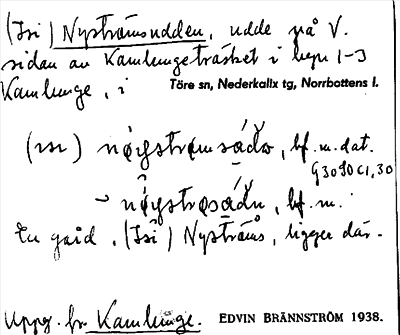 (Isi) Nyströmsudden, udde på V.
sidan av Kamlungeträsket i byn 1-3
Kamlunge, i Töre sn, Nederkalix tg, Norrbottens l.
bf. m. dat.
G 30 90 C1, 30
bf. m.
En gård, (Isi) Nyströms, ligger där.
Uppg. fr. Kamlunge. EDVIN BRÄNNSTRÖM 1938.